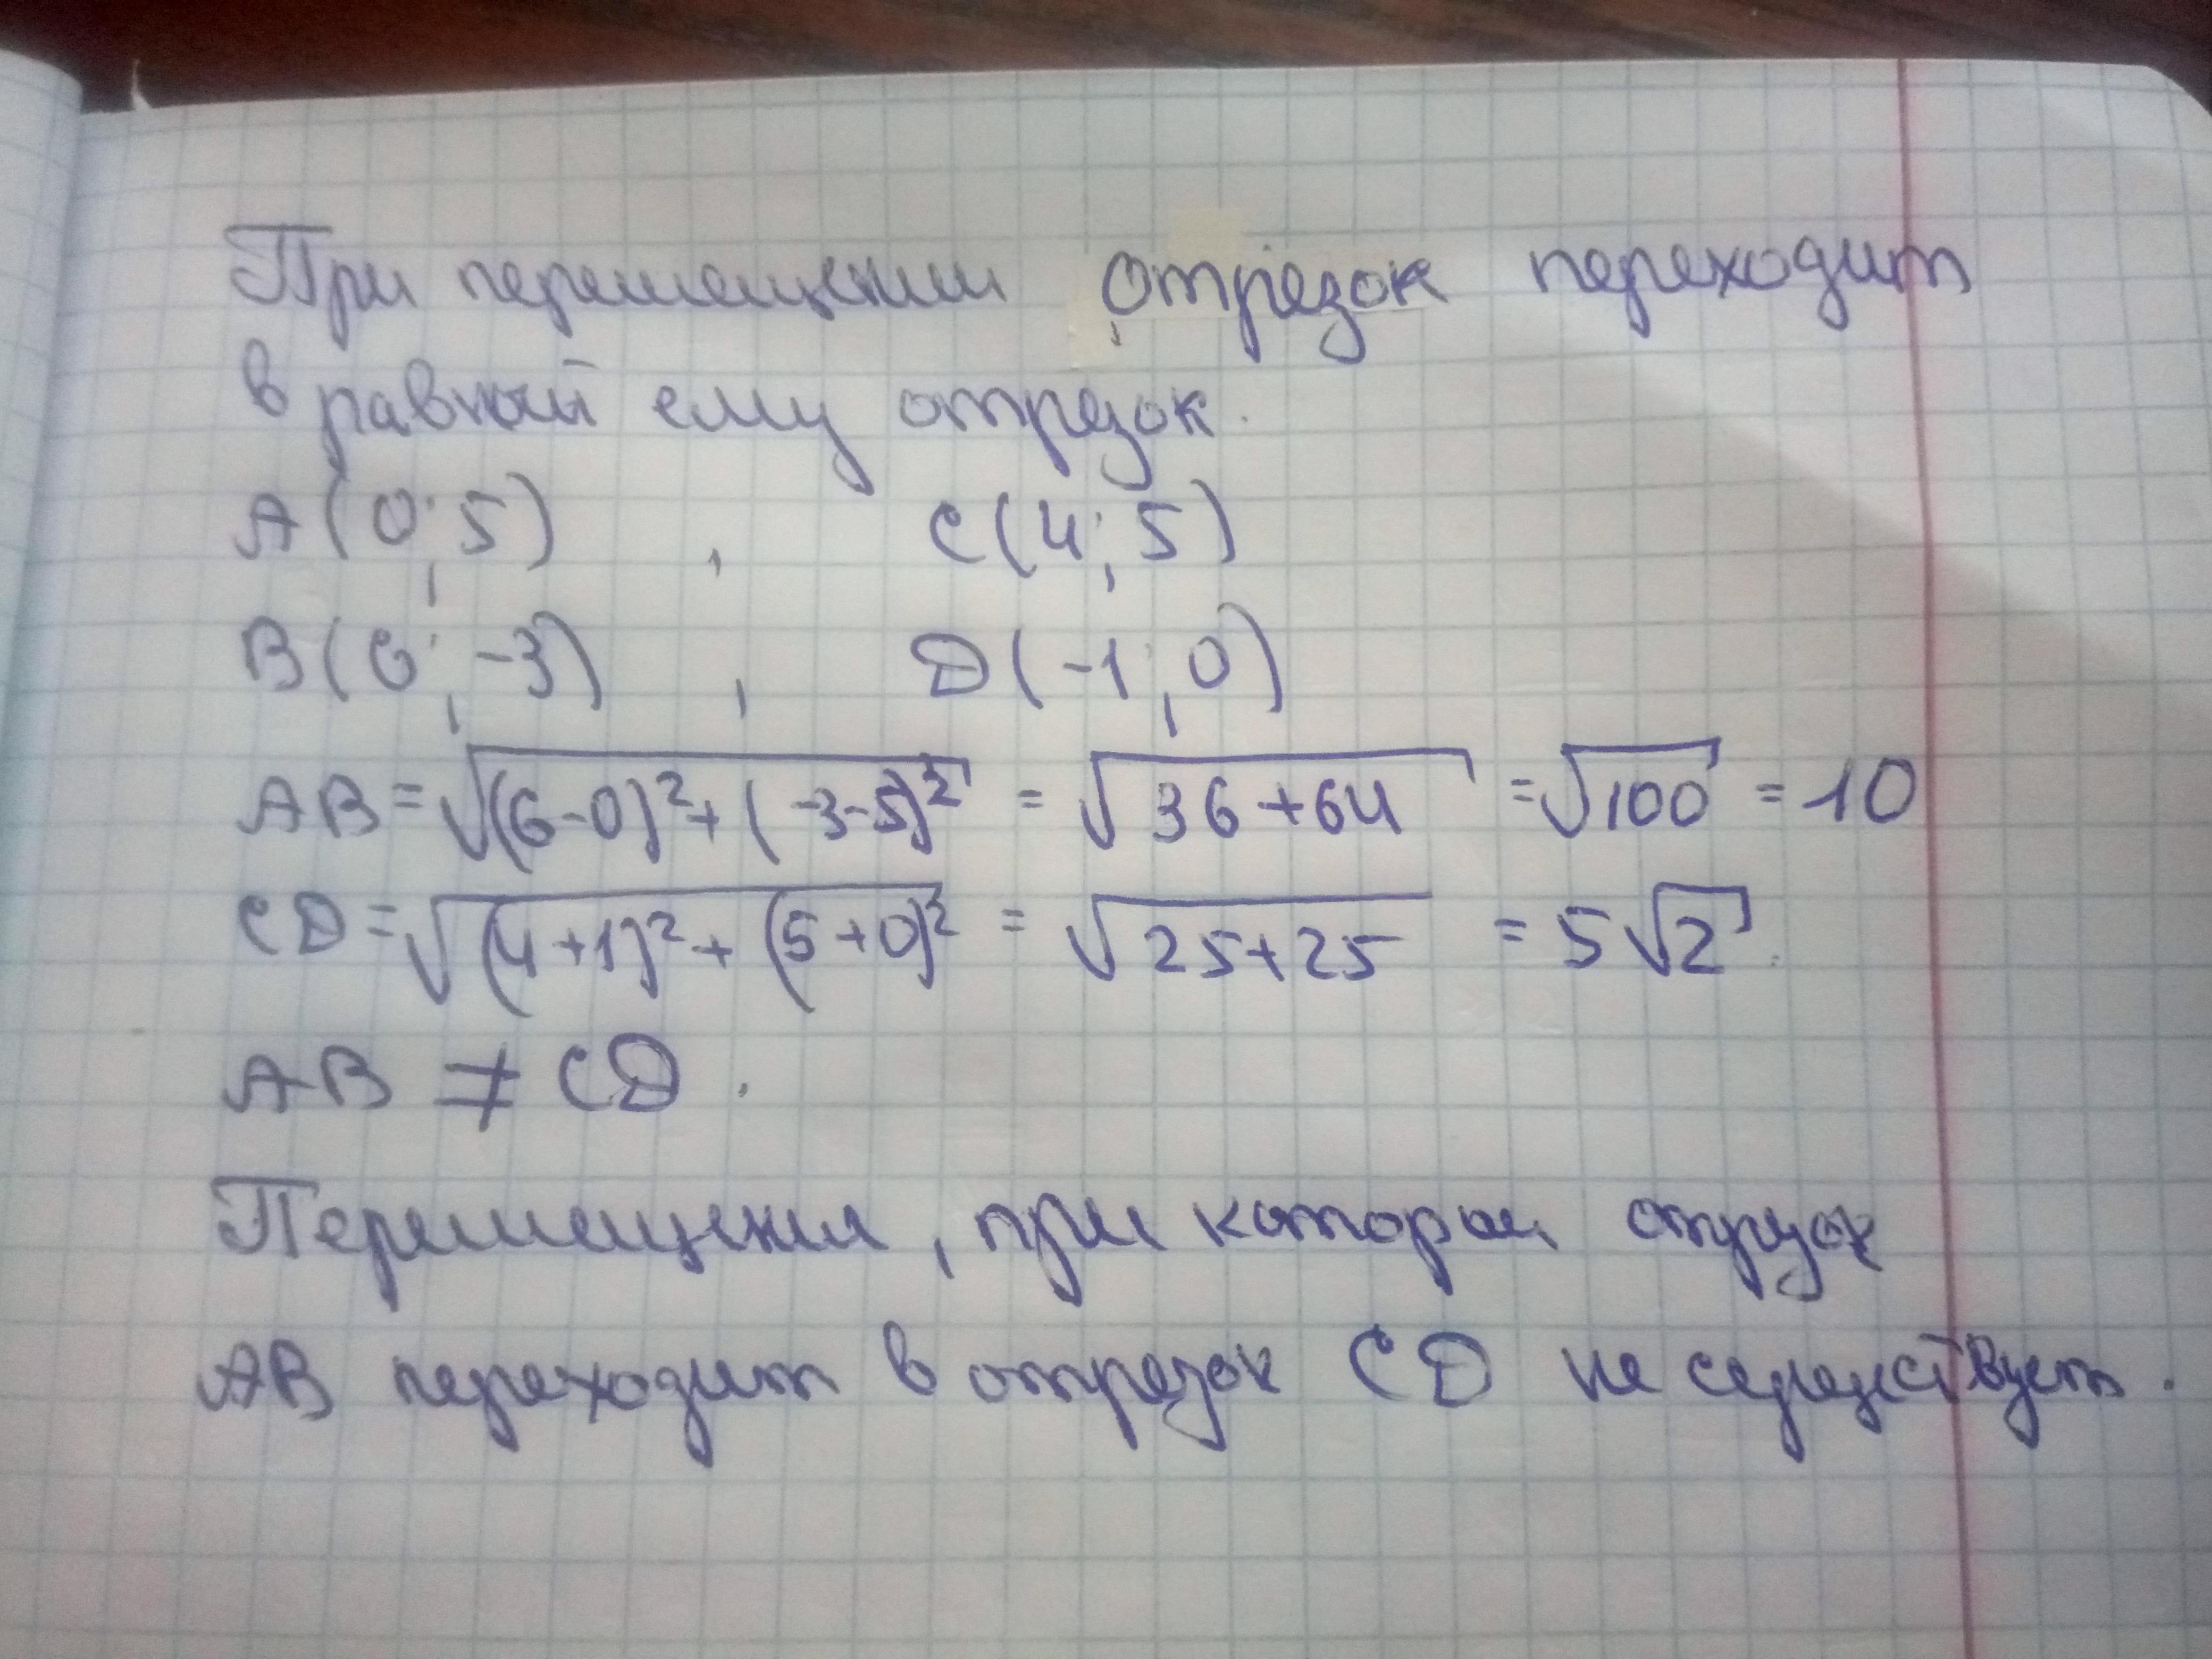 При перемещении отрезок переходит
в равный ему отрезок.
A(0;5) , C(4;5)
B(6;-3) , D(-1;0)
AB=√(6-0)²+(-3-5)² = √36+64 =√100 =10
CD=√(4+1)²+(5+0)² = √25+25 = 5√2.
AB ≠ CD.
Перемещения, при котором отрезок
AB переходит в отрезок CD не существует.